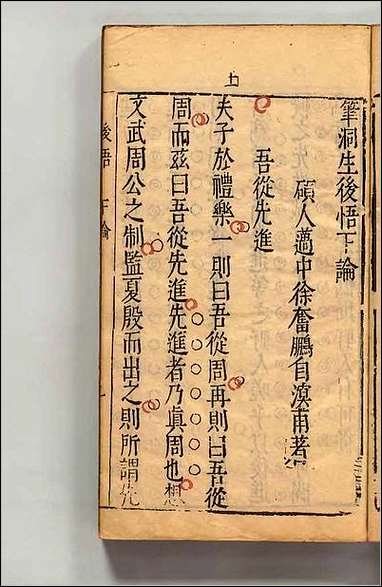 筆洞生後悟下論
碩人邁中徐奮鵬自溟甫著
吾從先進
夫子於禮樂一則曰吾從周再則曰吾從
周而茲曰吾從先進先進者乃眞周也想
文武周公之制監夏殷而出之則所謂先
後悟
下論